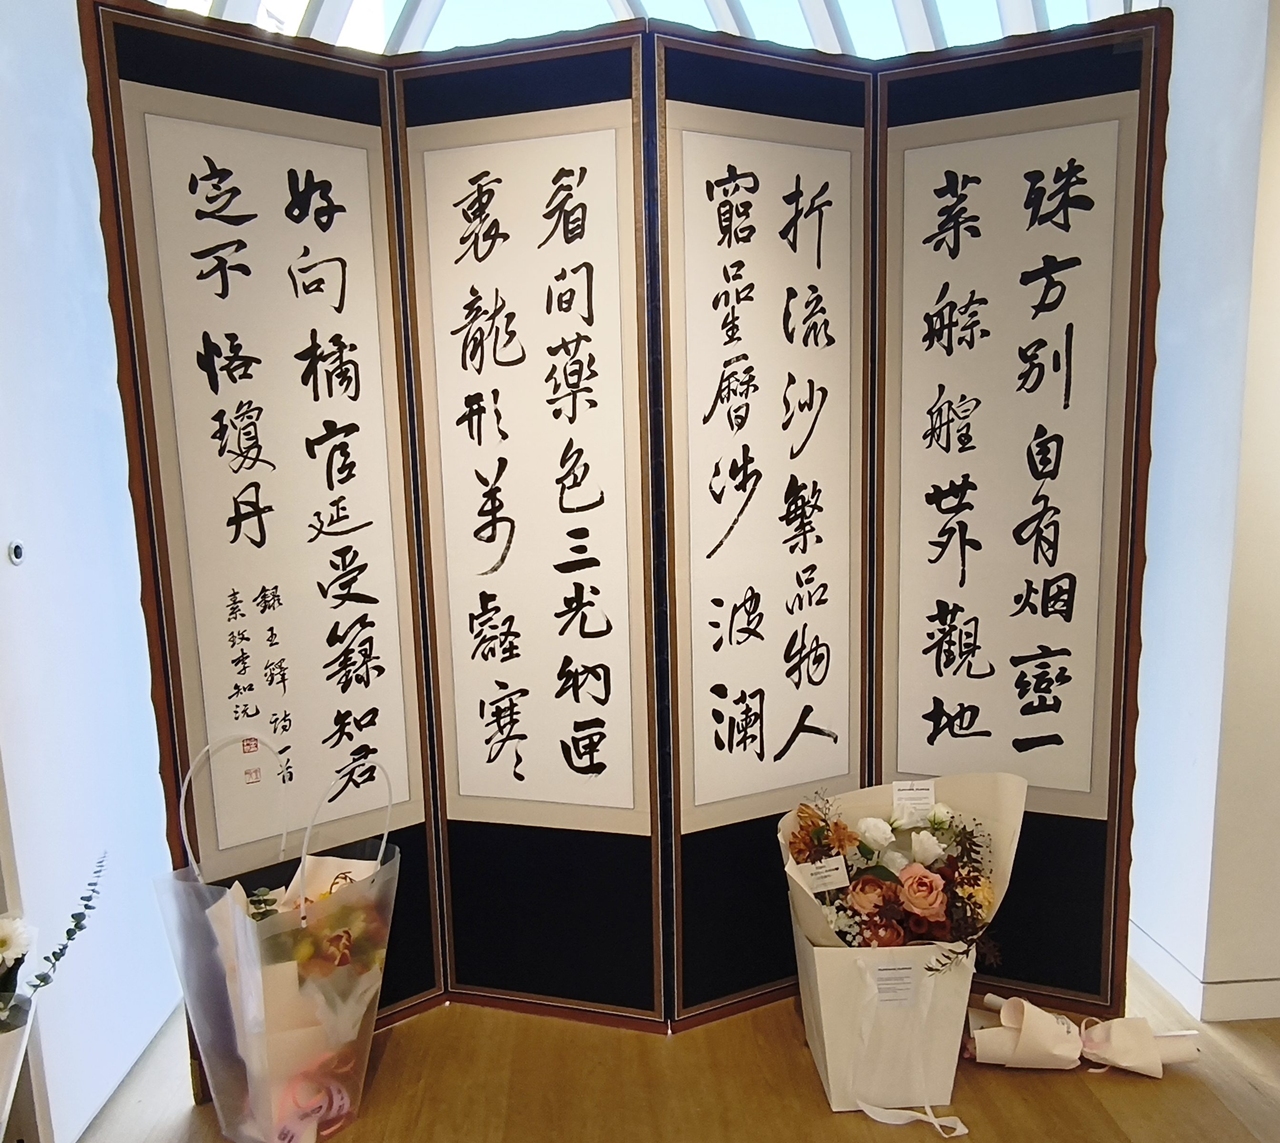 殊方別自有烟巒一
葉艅艎世外觀地
折流沙繁品物人
窮曐曆涉波瀾
眉間藥色三光納匣
裏龍形萬壑寒
好向橘官延受籙知君
定不悋瓊丹
錄王鐸詩一首
素玫李知沅